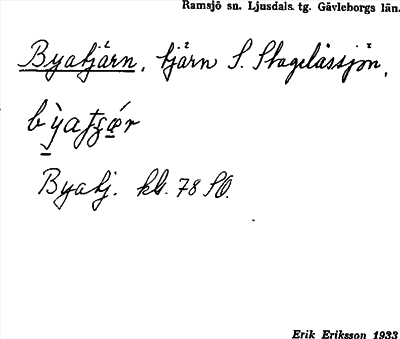 Ramsjö sn. Ljusdals. tg. Gävleborgs län.
Byatjärn, tjärn S. Stagelåssjön,
Byatj. kb. 78 SO.
Erik Eriksson 1933